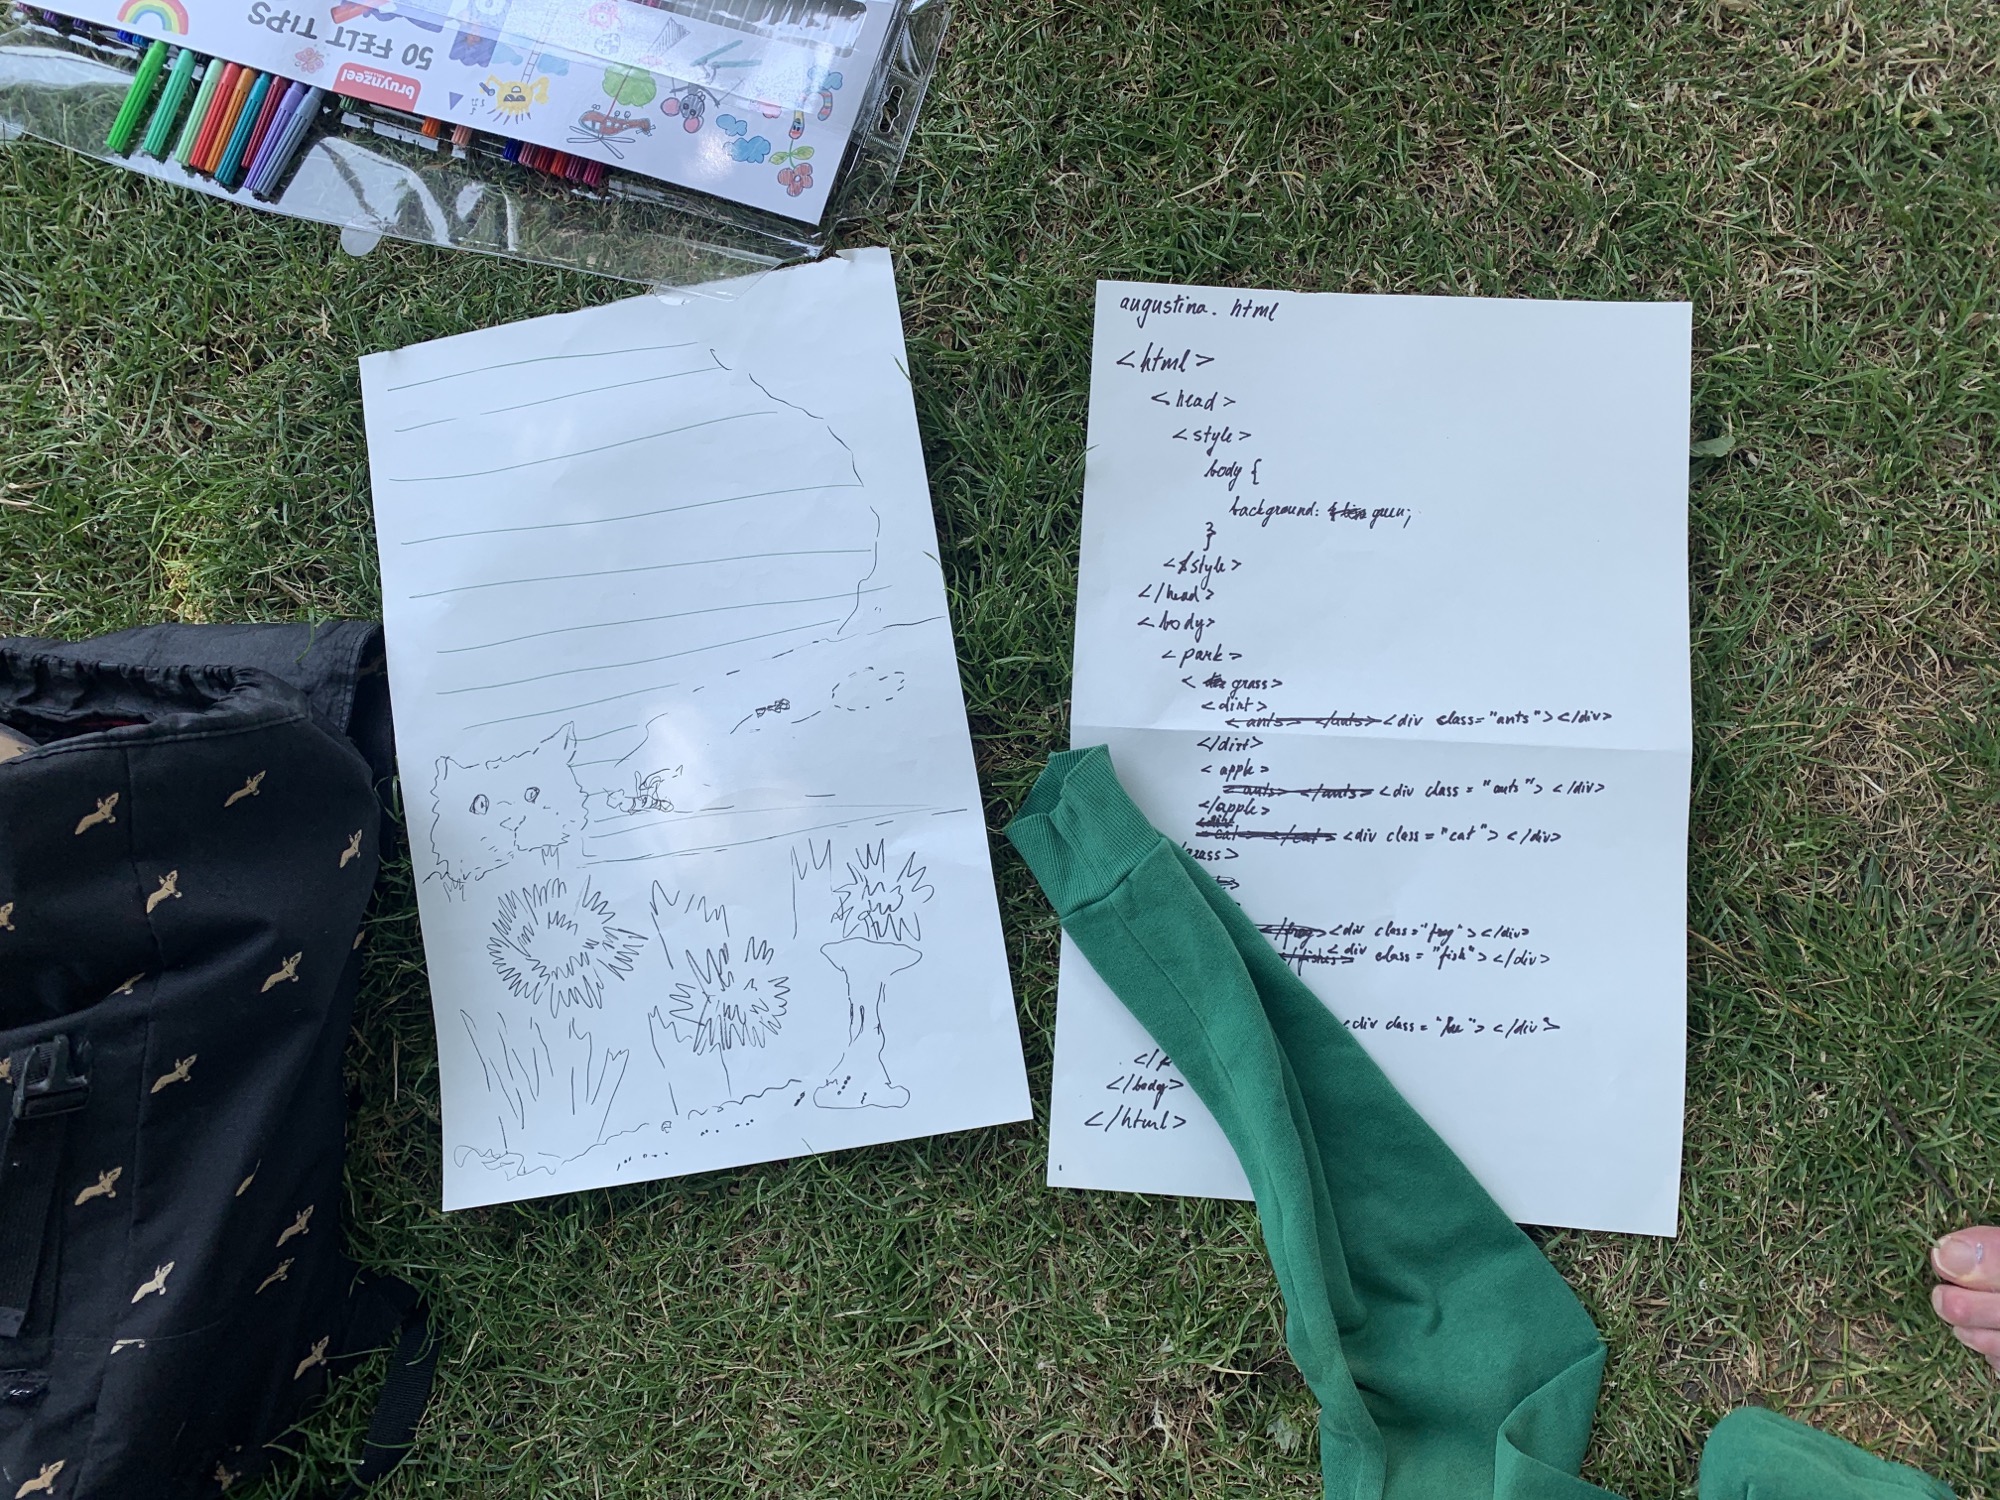 50 FELT TIPS
bruynzeel
augustina. html
<html>
<head>
<style>
body {
background: green;
}
</style>
</head>
<body>
<park>
< grass>
<dirt>
<ants> </ants> <div class="ants"></div>
</dirt>
<apple>
<ants> </ants> <div class = "ants"> </div>
</apple>
<cat> </cat> <div class = "cat"> </div>
grass>
</frog> <div class="frog"></div>
</fishes> <div class = "fish"></div>
<div class = ""> </div>
</
</body>
</html>